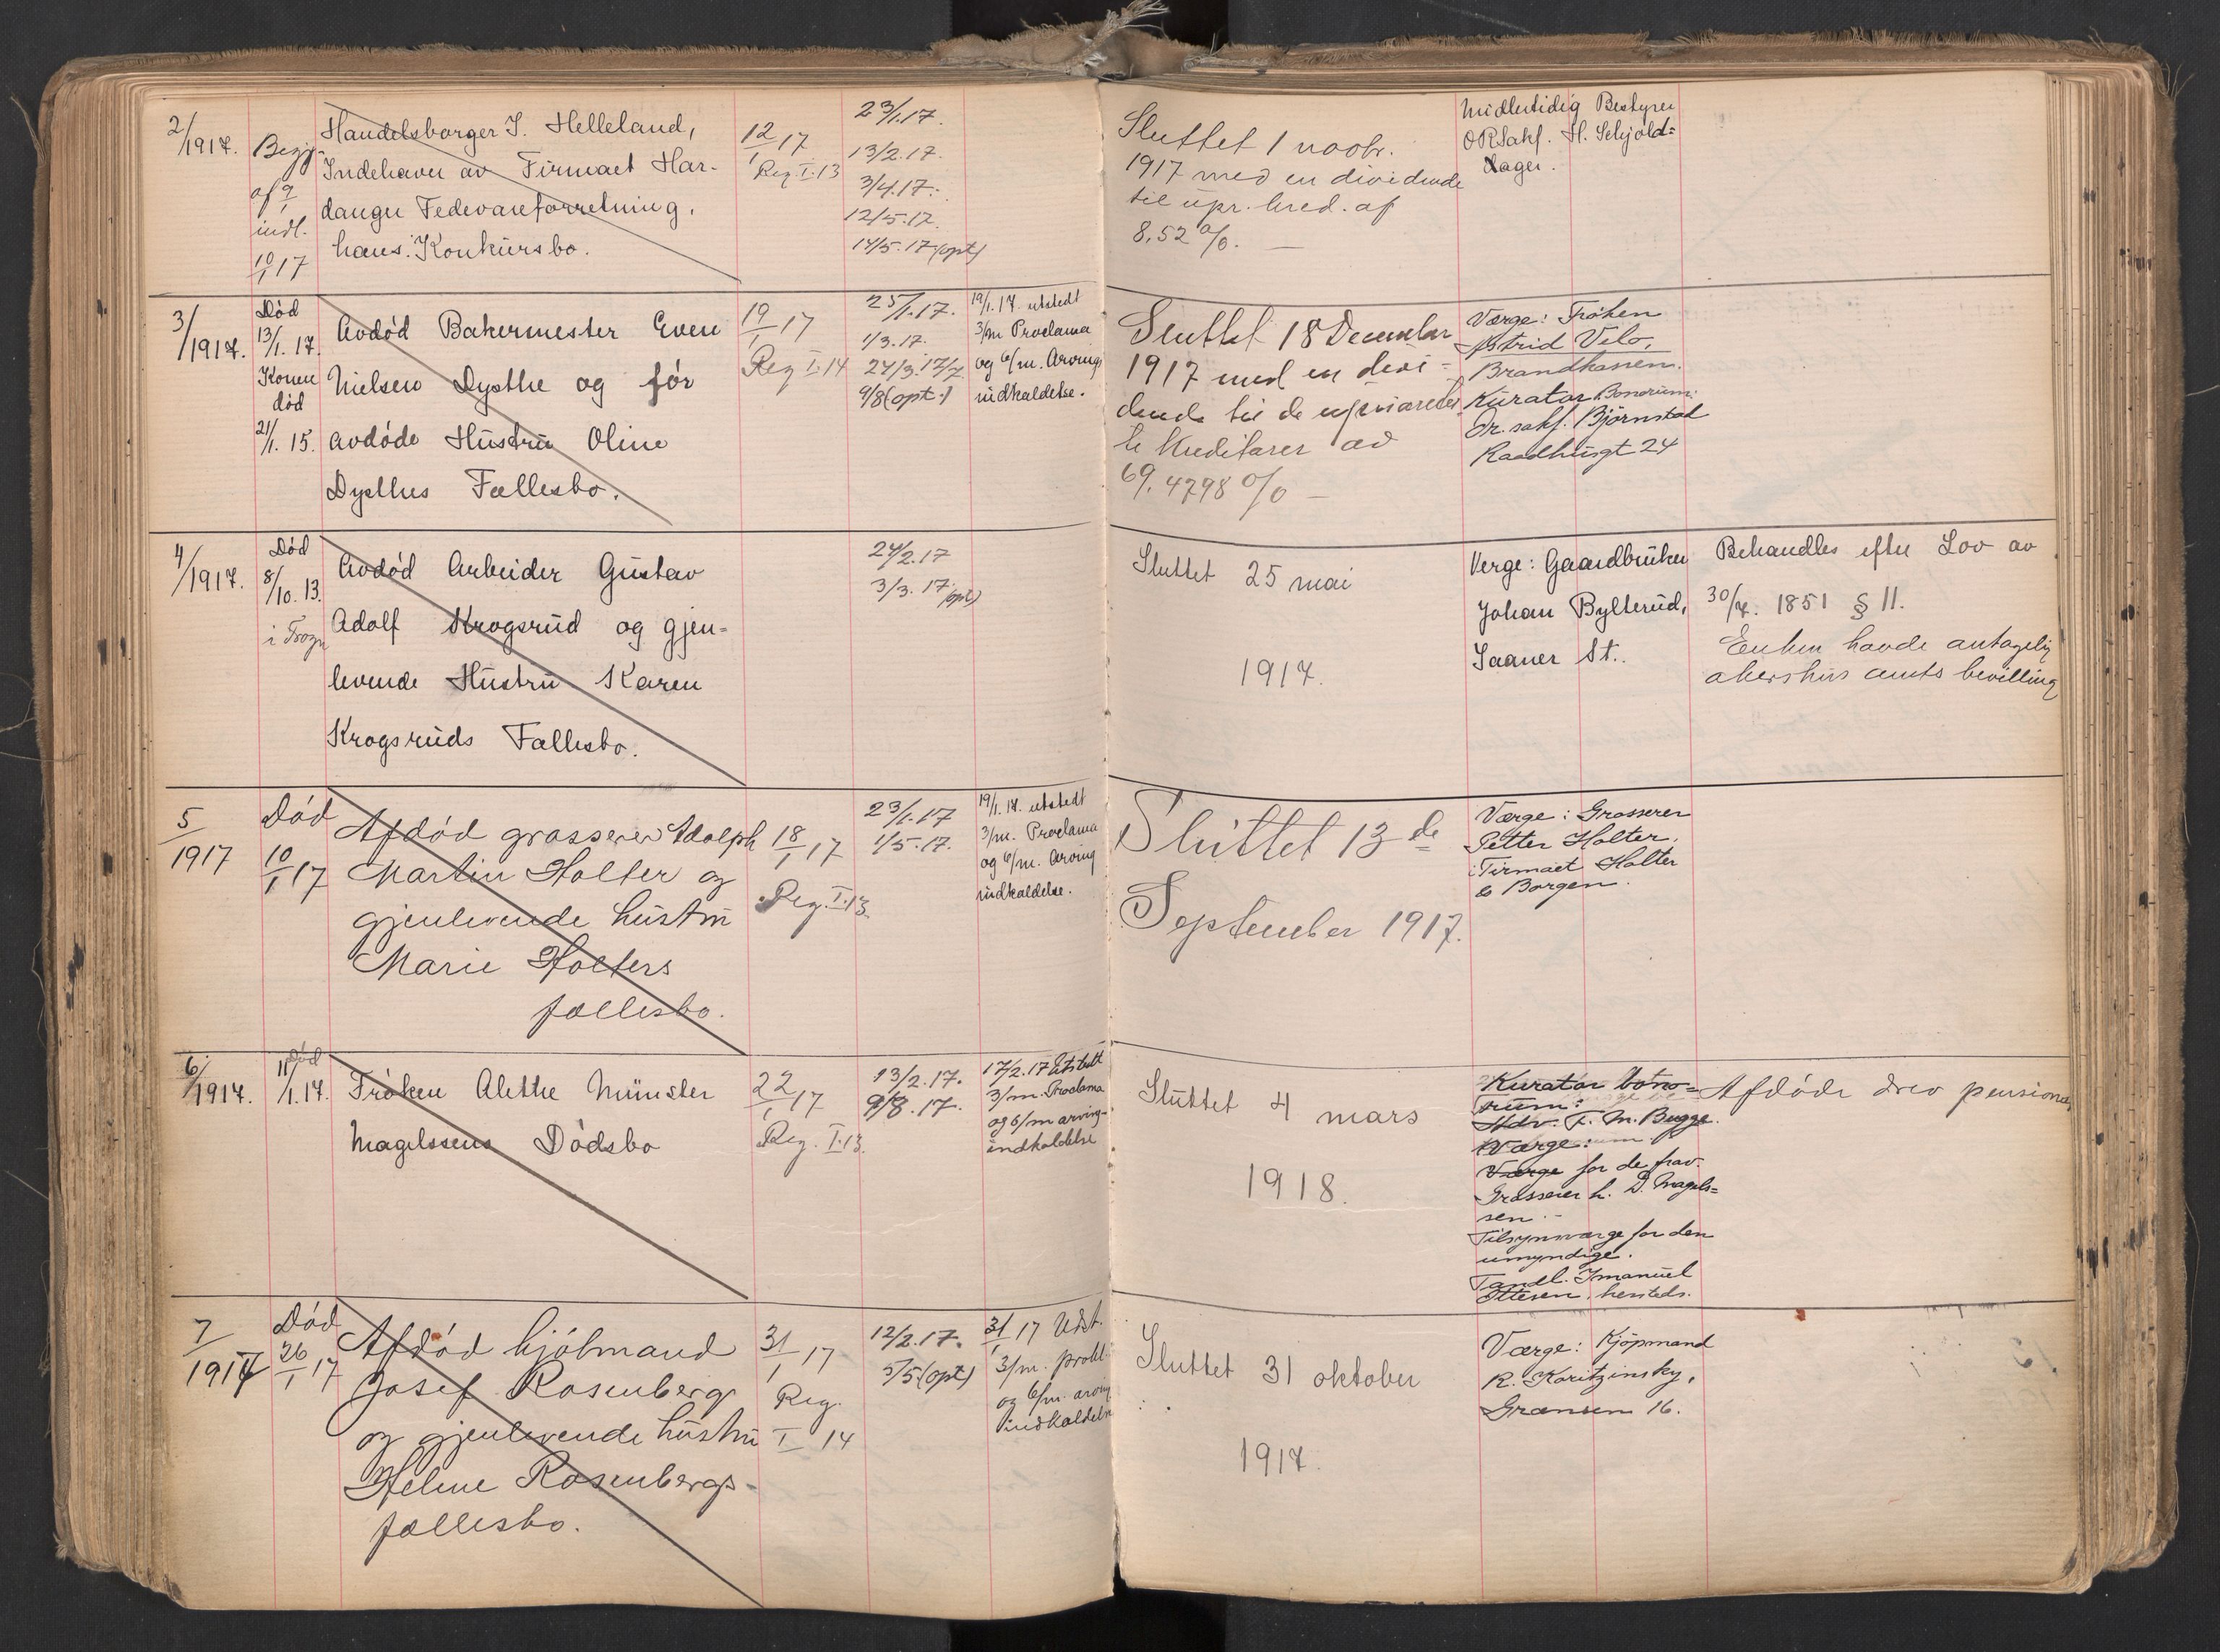 2/1917.
Begj.
af 9/1
indl.
10/1 17
Handelsborger J. Helleland,
Indehaver av Firmaet Har-
danger Fedevareforretning,
hans Konkursbo.
12/1 17
Reg. I. 13
23/1.17.
13/2.17.
3/4.17.
12/5.17.
14/5.17 (opt)
Sluttet 1 novbr.
1917 med en dividende
til upr. kred. af
8,52 %. —
Midlertidig Bestyrer
ORSakf. H. Schjold=
dager.
3/1917.
Død
13/1. 17.
Konen
død
21/1. 15.
Avdød Bakermester Even
Nielsen Dysthe og før
avdøde Hustru Oline
Dysthes Fællesbo.
19/1 17
Reg I. 14
25/1.17.
1/3.17.
24/3. 12/7
9/8 (opt.)
19/1.17. utstedt
3/m Proclama
og 6/m. Arving
indkaldelse.
Sluttet 18 December
1917 med en divi-
dende til de upriviligeder
te Kreditorer av
69,4798 % —
Værge: Frøken
Astrid Velo,
Brandkassen.
Kurator Bonorum:
Or. sakf. Bjørnstad
Raadhusgt 24
4/1917.
Død
8/10. 13.
i Frogn
Avdød Arbeider Gustav
Adolf Krogsrud og gjen-
levende Hustru Karen
Krogsruds Fællesbo.
24/2.17
3/3. 17 (opt)
Sluttet 25 mai
1917.
Verge: Gaardbruker
Johan Bylterud,
Saaner St..
Behandles efter Lov av
30/7. 1851 § 11.
Enken havde antagelig
akershus amts bevilling
5/1917
Død
10/1 17
Afdød grosserer Adolph
Martin Holter og
gjenlevende hustru
Marie Holters
fællesbo.
18/1 17
Reg. I. 13
23/1.17
1/5.17.
19/1.17. utstedt
3/m. Proclama
og 6/m. Arving
indkaldelse.
Sluttet 13 de
September 1917.
Værge: Grosserer
Petter Holter,
i Firmaet Holter
& Borgen.
6/1917.
Død
11/1.17.
Frøken Alethe Münster
Magelssens Dødsbo
22/1 17
Reg. I. 13
13/2.17.
9/8.17.
17/2.17 Utstedt
3/m. Proclama
og 6/m arving-
indkaldelse
Sluttet 4 mars
1918.
Kurator bono=
rum:
Adv. F. M. Bugge.
Værge:
Værge for de frav.
Grosserer h. D. Magels=
sen. -
Tilsynsværge for den
umyndige.
Tandl. Imanuel
Ottesen, hersteds.
Afdøde drev pensionat
7/1917
Død
26/1 17
Afdød kjøbmand
Josef Rosenberg
og gjenlevende hustru
Helene Rosenbergs
fællesbo.
31/1 17
Reg.
I 14
12/2.17.
5/5 (opt)
31/1 17 Udst.
3/m. prokl.
og 6/m. arving
indkaldelse
Sluttet 31 oktober
1917.
Værge: Kjøpmand
R. Koritzinsky,
Grænsen 16.